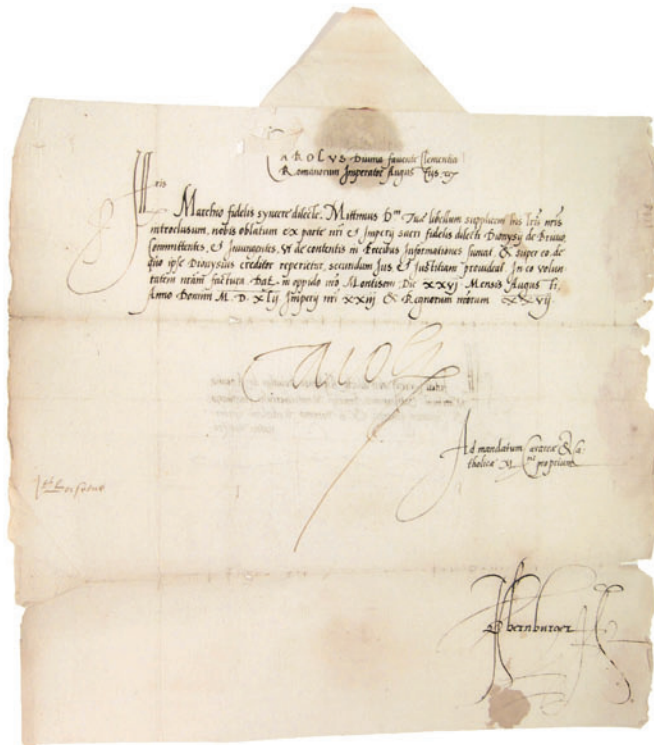 Carolus Divina favente Clementia
Romanorum Imperator Augus
Marchio fidelis syncere dilecte. Mittimus D. Tuæ libellum supplicem his nris
introclusum, nobis oblatum ex parte nri & Imperij sacri fidelis dilecti Dionysij de Bruno
Committentes, & Iniungentes, Vt de contentis in Precibus Informationes sumat, & super eo de
quo ipse Dionysius creditor reperietur, secundum Ius & Iustitiam provideat. In eo volun
tatem nram factura. Dat. in oppido nro Montisoni Die XXVI Mensis Augus ti.
Anno Domini M. D. XLij Imperij nri XXIIJ & Regnorum nrorum XXVIJ
Carolus
Ad mandatum Cæsareæ & Ca:
tholicæ M. proprium
Obernburger